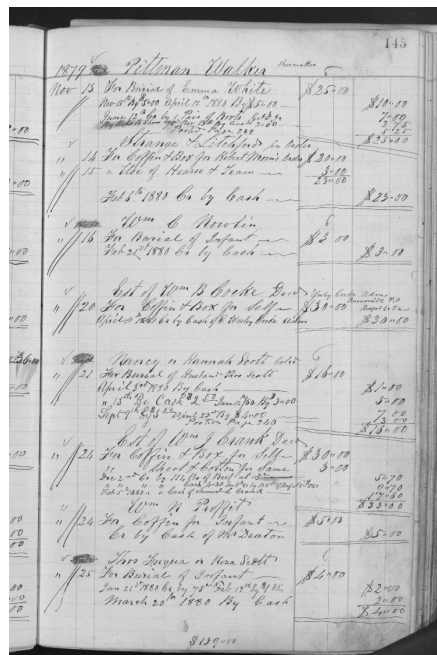 145
1879 Pittman Walker Shoemaker
Nov 13 For Burial of Emma White $25"00
Nov 15th By $5"00 April 10th 1880 By $5"00 $10"00
June 12th Cr by 1 Pair of Boots 7"00
By Cash 3"00
5"25
Posted Page 249 $25"00
Strange & Litchford per Order
" 14 For Coffin & Box for Robert Morris $20"00
" 15 " Use of Hearse & Team 3"00
23"00
Feb 4th 1880 Cr by Cash $23"00
Wm C Nowlin
" 16 For Burial of Infant $3"00
Feb 21st 1880 Cr by Cash $3"00
Est of Wm B Cooke Decd
" 20 For Coffin & Box for Self $30"00
April 1880 Cr by Cash of Cooke $30"00
Nancy or Hannah Scott Cold
" 21 For Burial of Husband Thos Scott $16"00
April 3rd 1880 By Cash $1"00
" 15th By Cash $2 June By $3"00 5"00
Sept By By $4"00 7"00
Posted Page 240
Est of Wm J Crank Decd
" 24 For Coffin & Box for Self $30"00
" Sheet & Cotton for Same 3"00
Dec 2nd Cr by of Beef at 5 5"70
Cash
Feb 5th 1880 Cash of Samuel L Crank
$33"00
Wm N Proffit
" 24 For Coffin for Infant $5"00
Cr by Cash of McDeaton $5"00
Thos Fuqua or Rosa Scott
" 25 For Burial of Infant $4"00
Jan 21st 1880 Cr by 75 Feb by $1.25 $2"00
March 20th 1880 By Cash 2"00
$4"00
$129"00